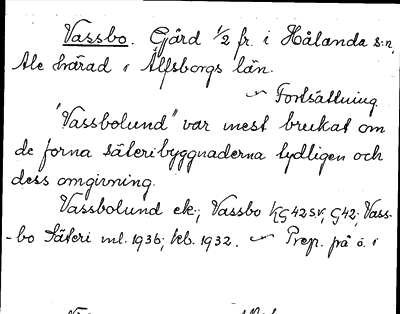 Vassbo. Gård 1/2 fr. i Hålanda s:n,
Ale härad i Älfsborgs län.
~ Fortsättning.
"Vassbolund" var mest brukat om
de forna säteribyggnaderna tydligen och
dess omgivning.
Vassbolund ek.; Vassbo KG 42 SV, G42; Vass-
-bo Säteri ml. 1936; kb. 1932. ~ Prep. på ö. i